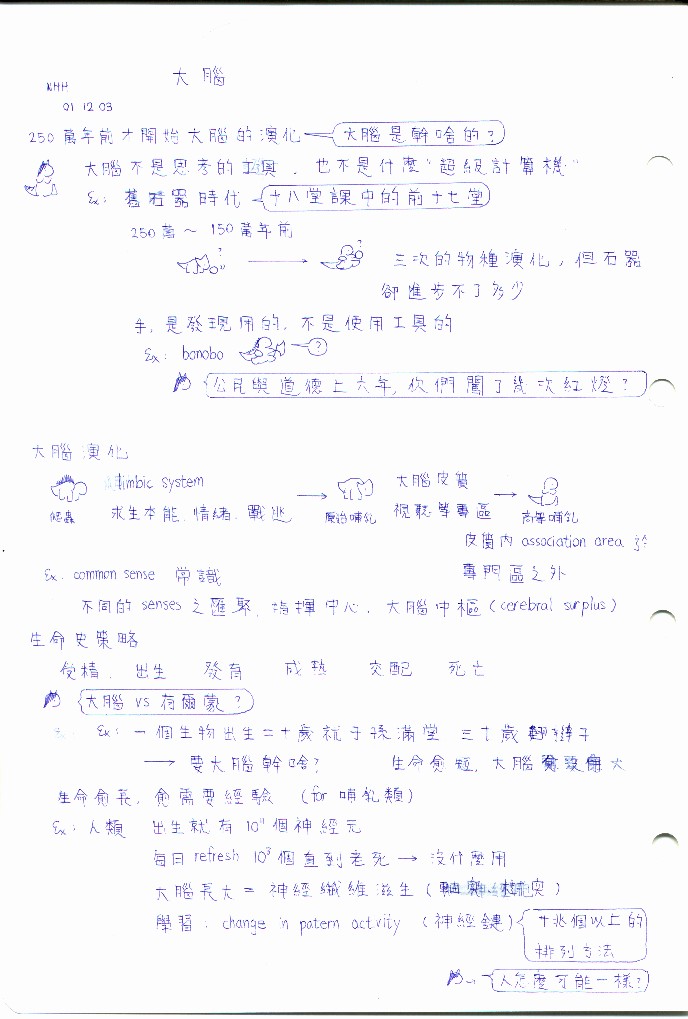 大腦
KHH
01 12 03
250 萬年前才開始大腦的演化 大腦是幹啥的?
大腦不是思考的工具, 也不是什麼"超級計算機"
Ex: 舊石器時代 十八堂課中的前十七堂
250萬 ~ 150萬年前
? → ?
三次的物種演化, 但石器
卻進步不了多少
手, 是發現用的, 不是使用工具的
Ex: bonobo ?
公民與道德上六年, 你們闖了幾次紅燈?
大腦演化
爬蟲 limbic system 求生本能, 情緒, 戰逃 → 原始哺乳 大腦皮質 視聽等專區 → 高等哺乳
皮質內 association area
專門區之外
Ex. common sense 常識
不同的 senses 之匯聚, 指揮中心, 大腦中樞 (cerebral surplus)
生命史策略
受精, 出生 發育 成熟 交配 死亡
大腦 vs 荷爾蒙?
Ex: 一個生物出生二十歲就子孫滿堂 三十歲翹辮子
→ 要大腦幹啥? 生命愈短, 大腦
生命愈長, 愈需要經驗 (for 哺乳類)
Ex: 人類 出生就有 10¹¹ 個神經元
每日 refresh 10³ 個直到老死 → 沒什麼用
大腦長大 = 神經纖維滋生 (
學習: change in patern activity (神經鏈) 十兆個以上的
排列方法
人怎麼可能一樣?